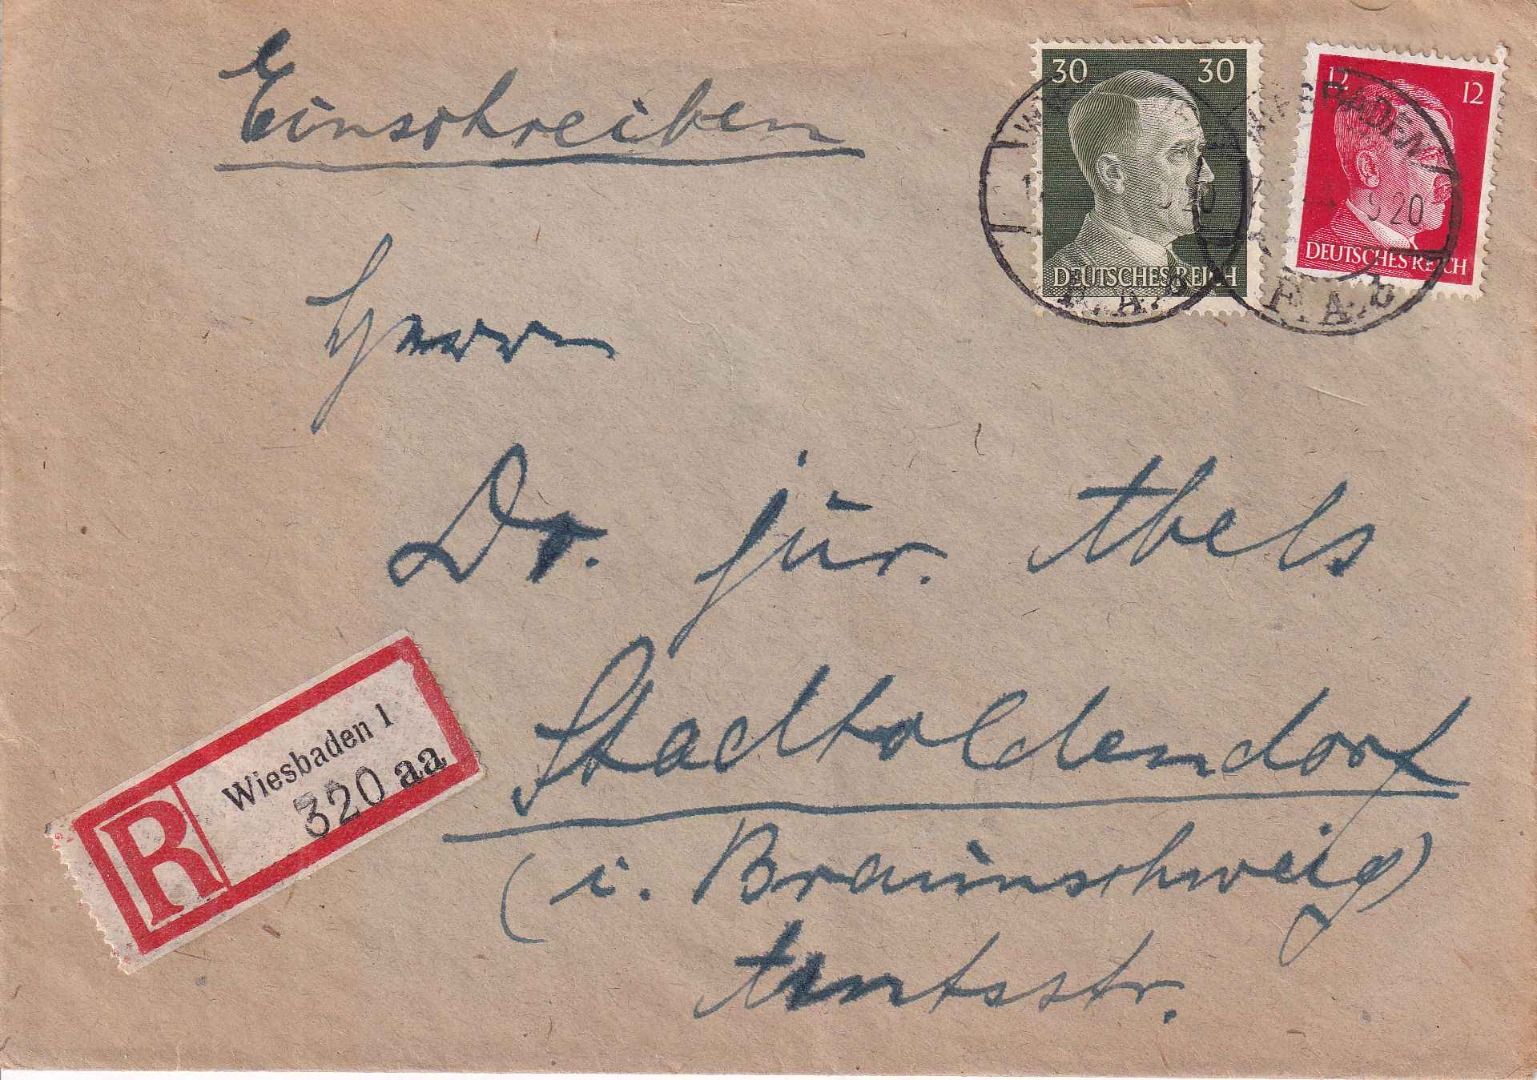 Einschreiben
30 30
DEUTSCHES REICH
12 12
DEUTSCHES REICH
WIESBADEN
9 20
P. A. 8
Herrn
Dr. jur. Abels
Stadtoldendorf
(i. Braunschweig)
Amtsstr.
R
Wiesbaden 1
320 aa